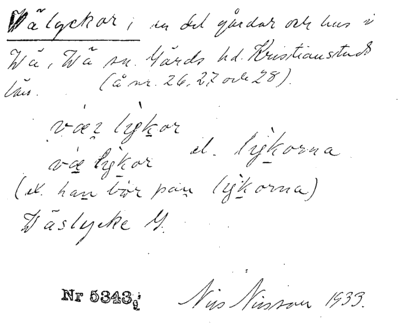 Välyckor, i en del gårdar och hus i
Vä, Vä sn. Gärds hd. Kristianstads
län. (å nr. 26, 27 och 28).
væ̱ʒ ly̱kor
væ̱ ly̱kor el. ly̱korna
(el. han bor på ly̱korna)
Väslycke G.
Nr 5343
Nils Nilsson 1933.